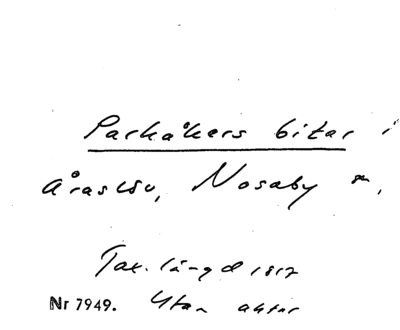 Parkåkers bitar i
Åraslöv, Nosaby sn,
Tax. längd 1817
Nr 7949. Utan aktar